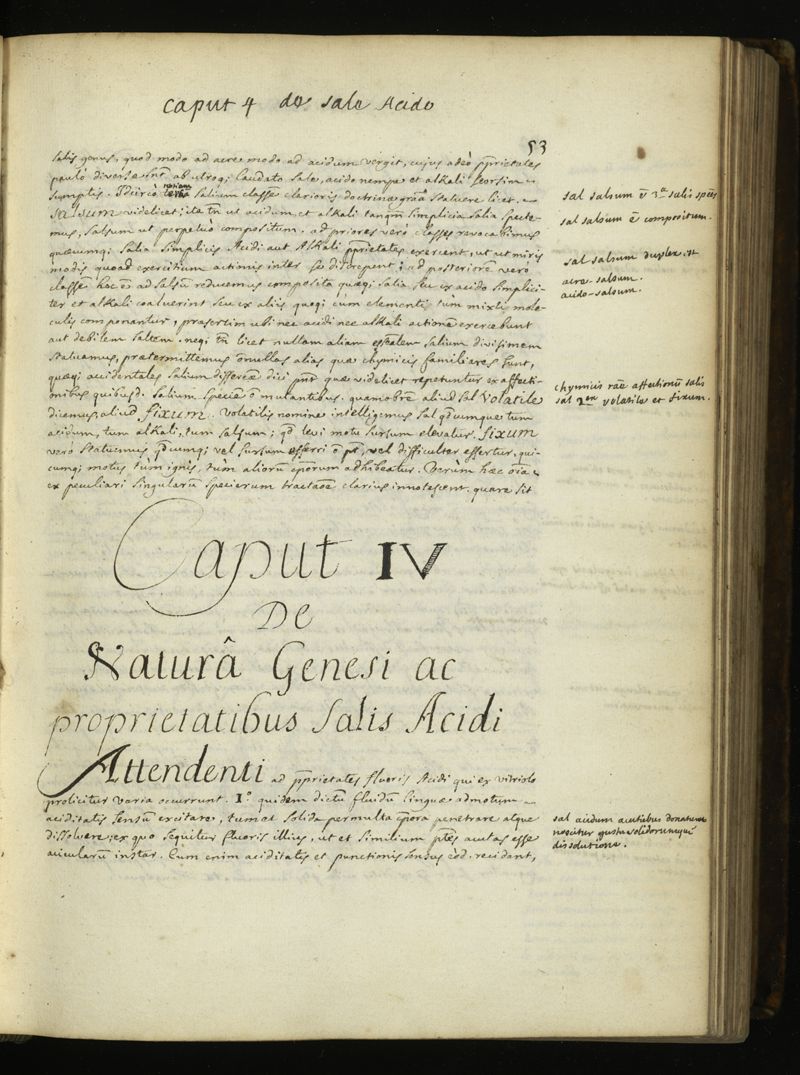 Caput 4 de sale Acido
53
salis genus, quod modo ad acre modo ad acidum vergit, cujus adeò pp̄rietates
paulò diversæ sn̄t ab utroq; laudato sale, acido nempe et alkali seorsim
sumptis. Idcircò salium classē clarioris doctrinæ grāo statuere licet.
Salsum videlicet; ita tn̄ ut acidum et alkali tanqm̄ simplicia salia specte-
mus, salsum ut perpetuò compositum. ad priores verò classes revocabimus
quæcumq; salia simplicis Acidi aut Alkali pp̄rietates exercent, ut ut miris
modis quoad exercitium actionis inter se discrepent; ad posteriorē verò
classē hoc ē ad salsū reducemus composita quæq; salia seu ex acido simplici-
ter et alkali coaluerint seu ex aliis quoq; cūm elementis tùm mixti mole-
culis componantur, præsertim ubi nec acidi nec alkali actionē exercebunt
aut debilem saltem. neq; tn̄ licet nullam aliam essn̄alem salium divisionem
statuamus, prætermittemus nonnullas alias quæ chymicis familiares sunt,
quæq; accidentales salium differæ dici pn̄t quæ videlicet repetuntur ex affecti-
onibus quibusd. salium speciē n̄ mutantibus. quamobrē aliud sal Volatile
dicemus, aliud fixum. Volatilis nomine intelligemus sal qdcumque tum
acidum, tum alkali, tum salsum; qd levi motu sursum elevatur. fixum
vero statuemus qdcumq; vel sursum efferri n̄ pt̄, vel difficulter effertur, qui-
cumq; motus tum ignis, tùm aliorū cp̄orum adhibeatur. Verùm hæc oīa
ex peculiari singularū specierum tractaōe clarius innotescent. quare sit
sal salsum ē 3ᵃ salis spēs
sal salsum ē compositum.
sal salsum duplex. st
acre-salsum.
acido-salsum.
chymicis rāe affectionū salis
sal volatile et fixum.
Caput IV
De
Naturâ Genesi ac
proprietatibus Salis Acidi
Attendenti ad pp̄rietates fluoris Acidi qui ex vitriolo
prolicitur varia occurrunt. 1° quidem dictū fluidū linguæ admotum
aciditatis sensū excitare, tum et solida permulta cp̄ora penetrare atque
dissolvere; ex quo sequitur fluoris illius, ut et similium ptēs acutas esse
acicularū instar. Cum enim aciditatis et punctionis sensus eòd. recidant,
sal acidum acutibus donatum
noscitur gustu solidorumque
dissolutione.